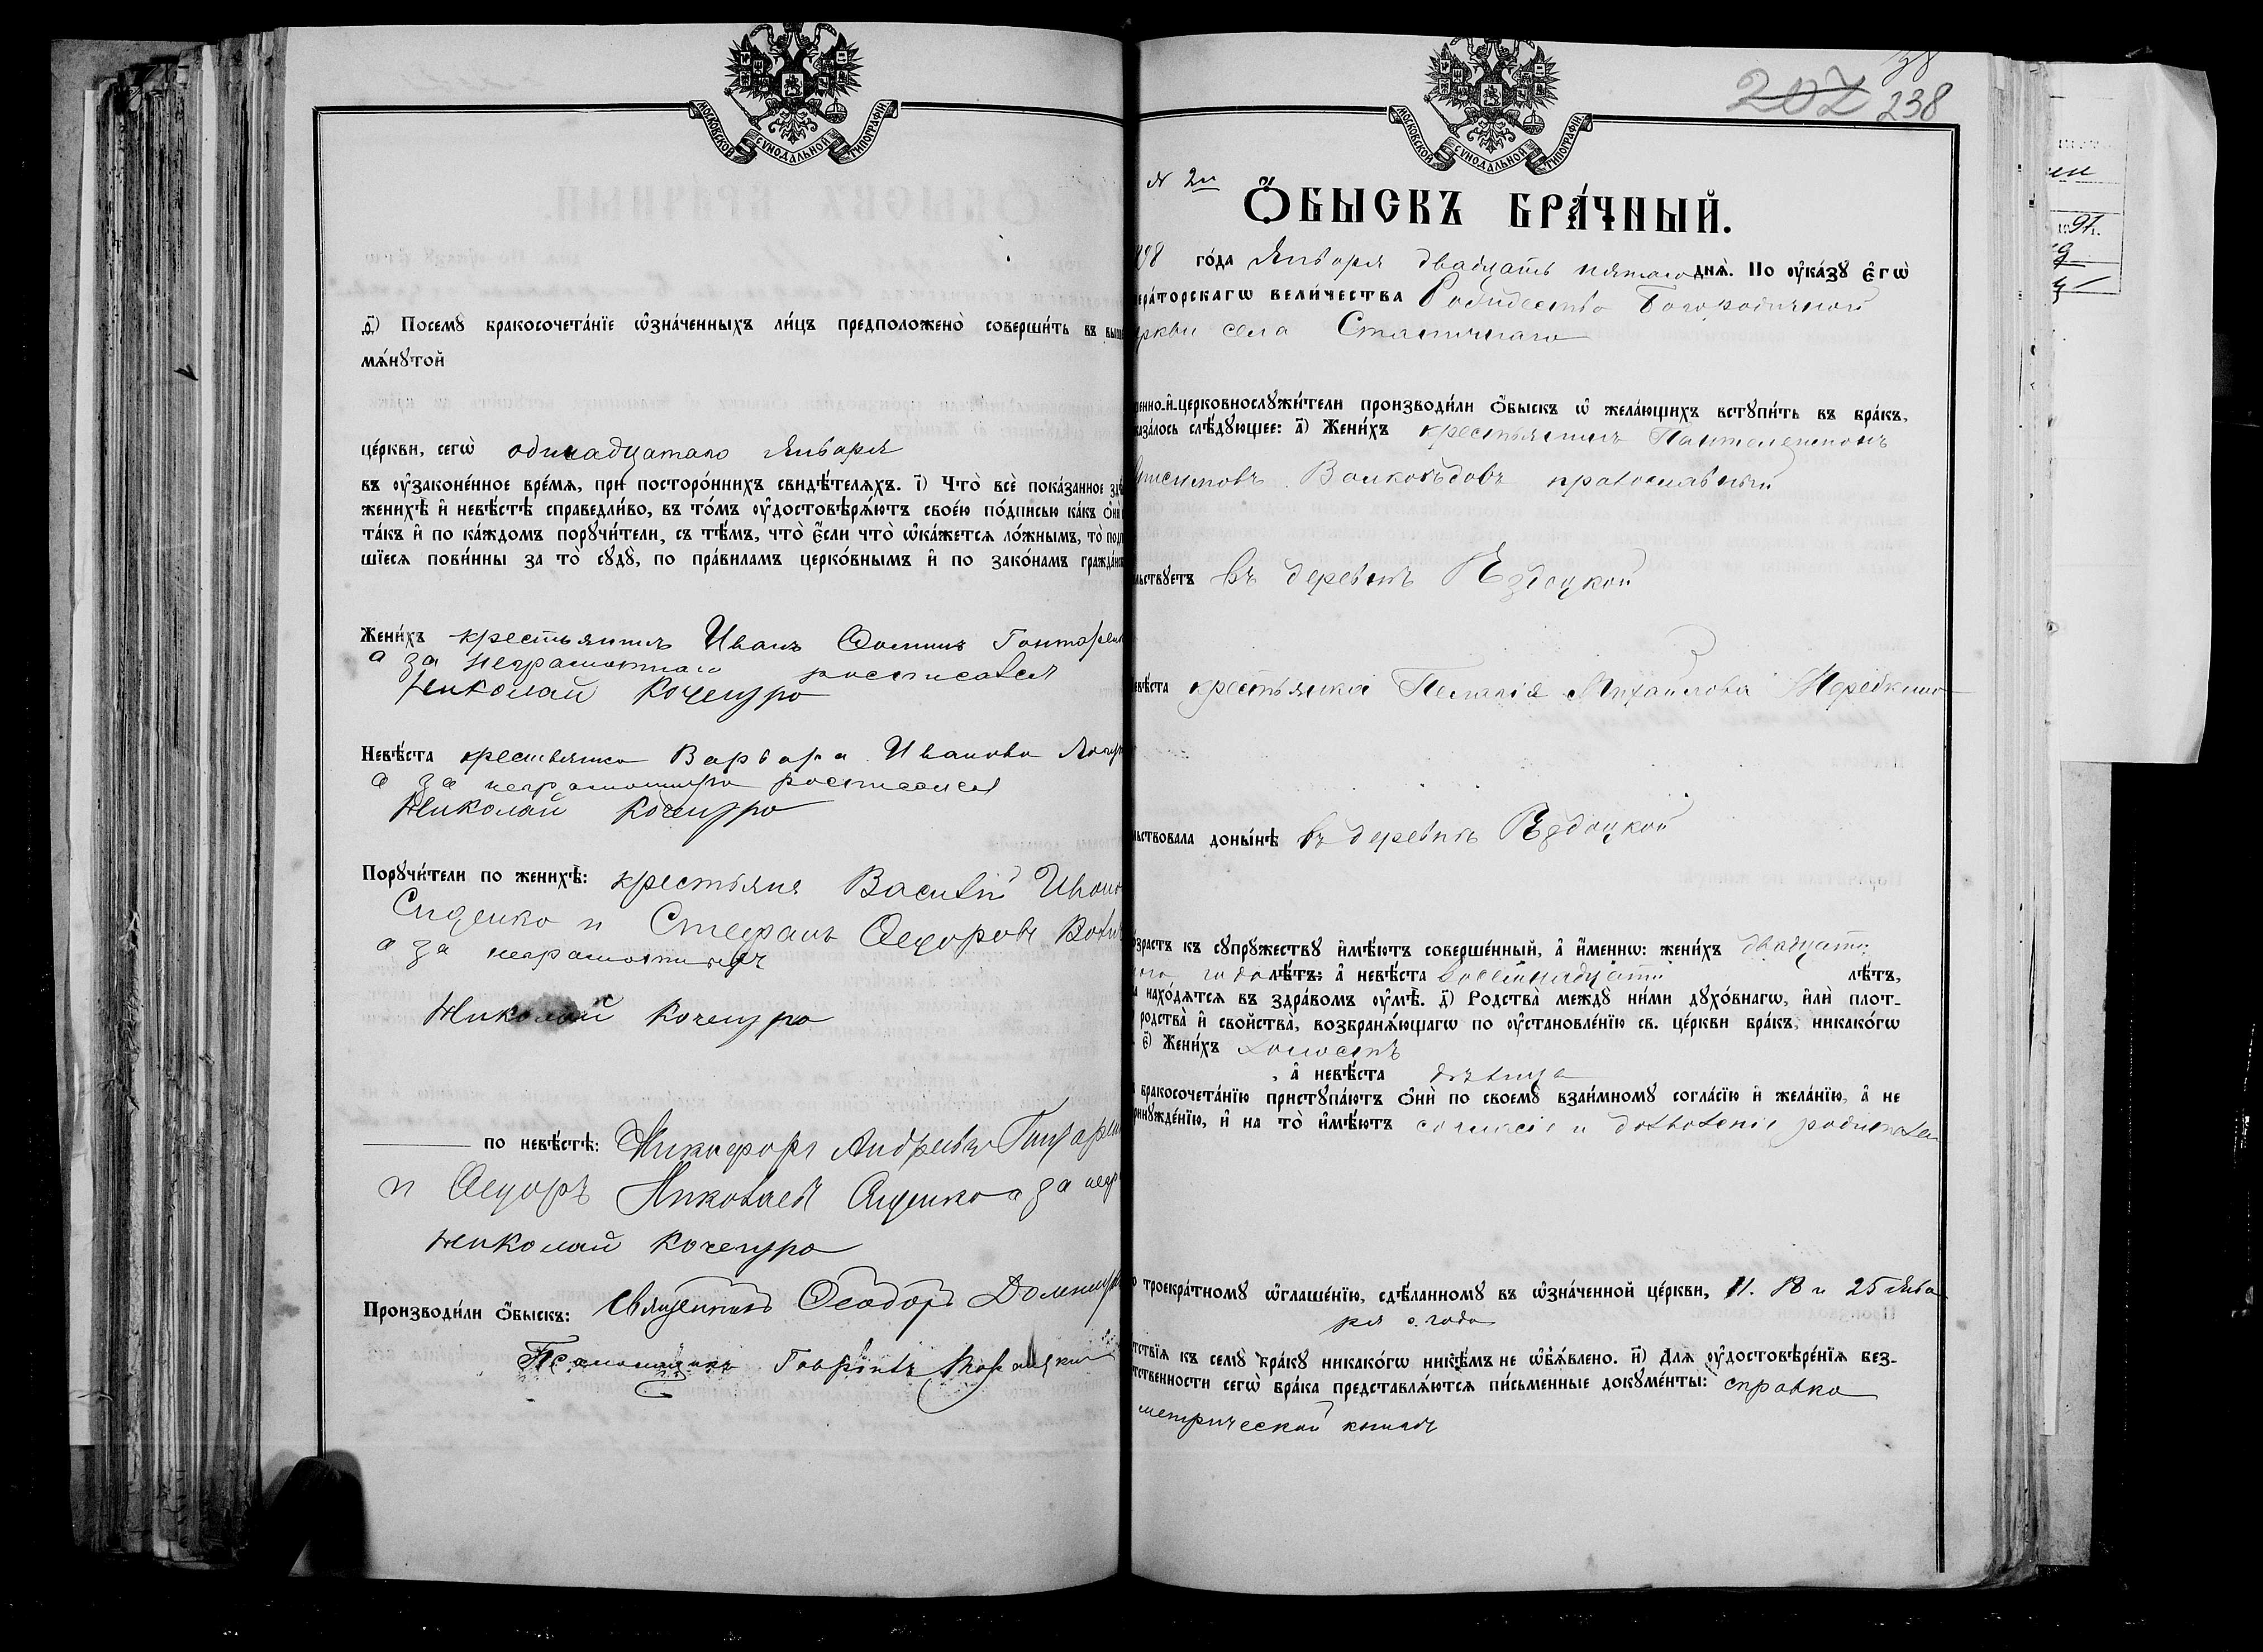 МОСКОВСКОЙ СѴНОДАЛЬНОЙ ТИПОГРАФІИ
ѳ҃) Посемꙋ̀ бракосочета́нїе ѡ҆зна́ченныхъ ли́цъ предположено̀ соверши́ть въ выше
мѧ́нꙋтой
це́ркви, сегѡ̀ одинадцатаго Января
въ ᲂу҆зако́ненное вре́мѧ, при посторо́ннихъ свидѣ́телѧхъ. і҃) Что̀ всѐ пока́занное здѣ
женихѣ̀ и҆ невѣ́стѣ справедли́во, въ то́мъ ᲂу҆достовѣрѧ́ютъ свое́ю по́дписью ка́къ ѻ҆нѝ
та́къ и҆ по ка́ждомъ порꙋчи́тели, съ тѣ́мъ, что̀ є҆́сли что̀ ѡ҆ка́жетсѧ ло́жнымъ, то̀ подп
шїесѧ пови́нны за то̀ сꙋдꙋ̀, по пра́виламъ церко́внымъ и҆ по зако́намъ гражда́нск
Жени́хъ крестьянинъ Иванъ Фоминъ Гонтарен
а за неграмотнаго росписался
Николай Кочемуро
Невѣ́ста крестьянка Варвара Иванова
а за неграмотную росписался
Николай Кочемуро
Порꙋчи́тели по женихѣ̀: крестьяне Василій Ивано
Сиденко и Стефанъ Ѳедоровъ
а за неграмотныхъ
Николай Кочемуро
по невѣ́стѣ: Никифоръ Андреевъ
и Ѳедоръ Николаевъ а за негр
Николай Кочемуро
Производи́ли ѻ҆́быскъ: священникъ Ѳеодоръ
Псаломщикъ Гавріилъ
МОСКОВСКОЙ СѴНОДАЛЬНОЙ ТИПОГРАФІИ
38
207 238
№ 2й
Ѻ҆́БЫСКЪ БРА́ЧНЫЙ.
98 го́да Января двадцать пятаго днѧ̀. По ᲂу҆ка́зꙋ є҆гѡ̀
ера́торскагѡ вели́чества Рождество Богородичной
ркви села Станичнаго
енно-и҆-церковнослꙋжи́тели производи́ли ѻ҆́быскъ ѡ҆ жела́ющихъ встꙋпи́ть въ бра́къ,
каза́лось слѣ́дꙋющее: а҃) Жени́хъ крестьянинъ Пантелеимонъ
нисимовъ Волкоѣдовъ православный
льствꙋетъ въ деревнѣ Ѣздоцкой
евѣ́ста крестьянка Пелагія Михайлова
льствовала доны́нѣ въ деревнѣ Ѣздоцкой
о́зрастъ къ сꙋпрꙋ́жествꙋ и҆мѣ́ютъ соверше́нный, а҆ и҆́меннѡ: жени́хъ двадцати
ого года лѣ́тъ; а҆ невѣ́ста восемнадцати лѣ́тъ,
а нахо́дѧтсѧ въ здра́вомъ ᲂу҆мѣ̀. д҃) Родства̀ междꙋ̀ ни́ми дꙋхо́внагѡ, и҆лѝ плот-
родства̀ и҆ свойства̀, возбранѧ́ющагѡ по ᲂу҆становле́нїю св. це́ркви бра́къ, никако́гѡ
є҃) Жени́хъ холостъ
, а҆ невѣ́ста дѣвица
бракосочета́нїю пристꙋпа́ютъ ѻ҆нѝ по своемꙋ̀ взаи́мномꙋ согла́сїю и҆ жела́нїю, а҆ не
ринꙋжде́нїю, и҆ на то̀ и҆мѣ́ютъ согласіе и дозволеніе родителей
о троекра́тномꙋ ѡ҆глаше́нїю, сдѣ́ланномꙋ въ ѡ҆зна́ченной це́ркви, 11. 18 и 25 Янва
ря с. года
тствїѧ къ семꙋ̀ бра́кꙋ никако́гѡ никѣ́мъ не ѡ҆б̾ѧ́влено. и҃) Длѧ ᲂу҆достовѣре́нїѧ без-
тственности сегѡ̀ бра́ка представлѧ́ютсѧ пи́сьменные докꙋме́нты: справка
метрической книги